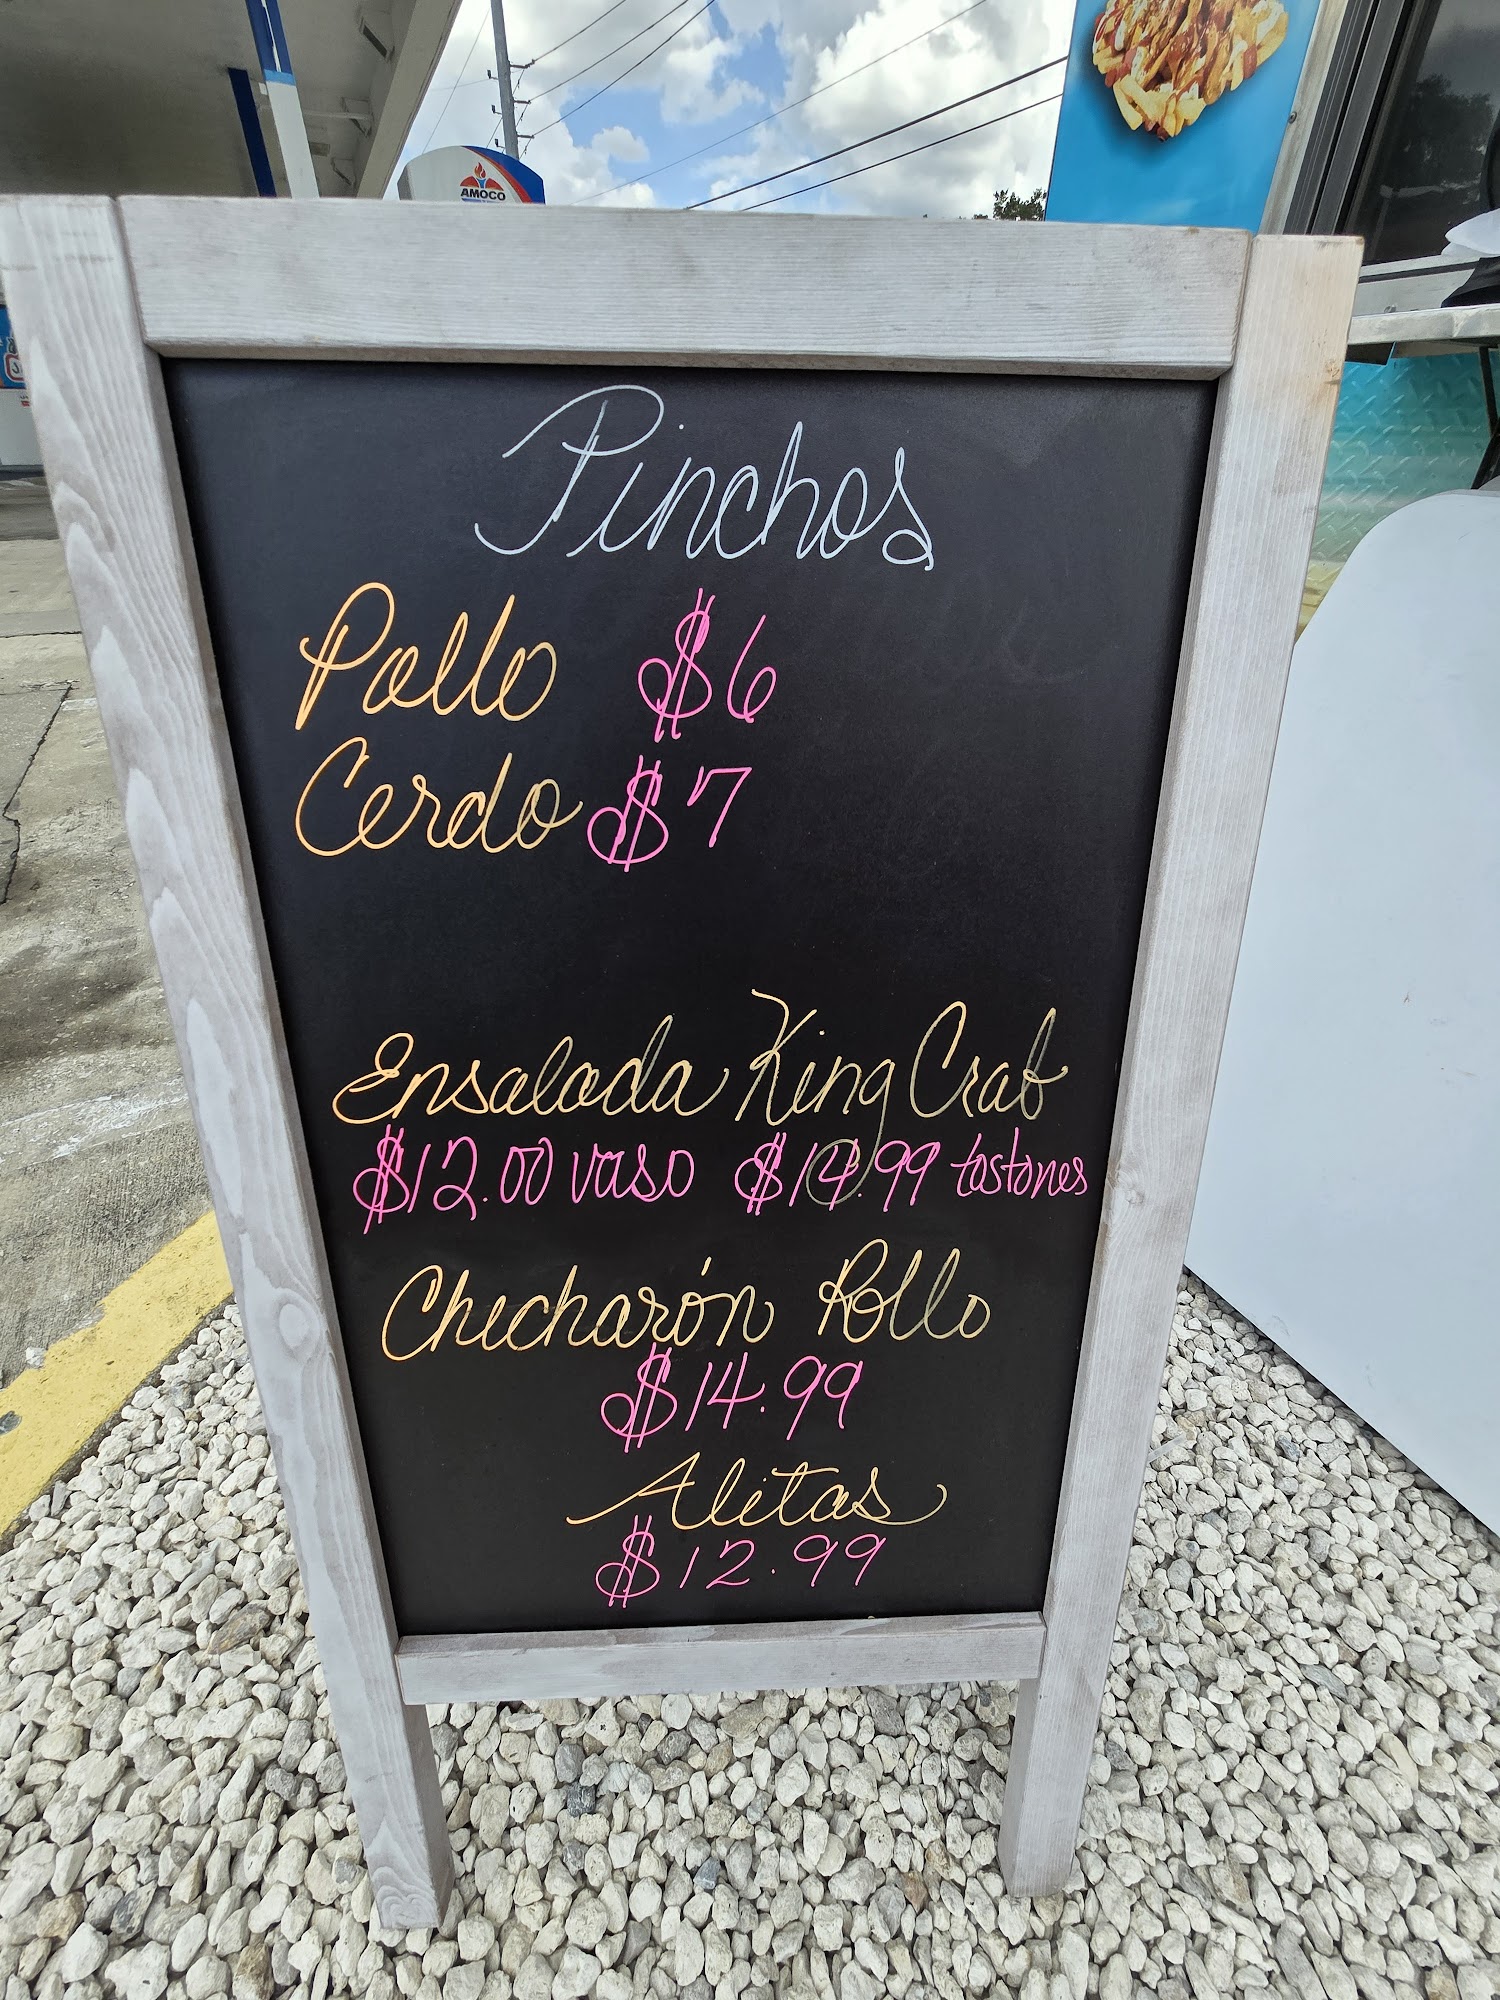 AMOCO
Pinchos
Pollo $6
Cerdo $7
Ensalada King Crab
$12.00 vaso $14.99 tostones
Checharón Pollo
$14.99
Alitas
$12.99